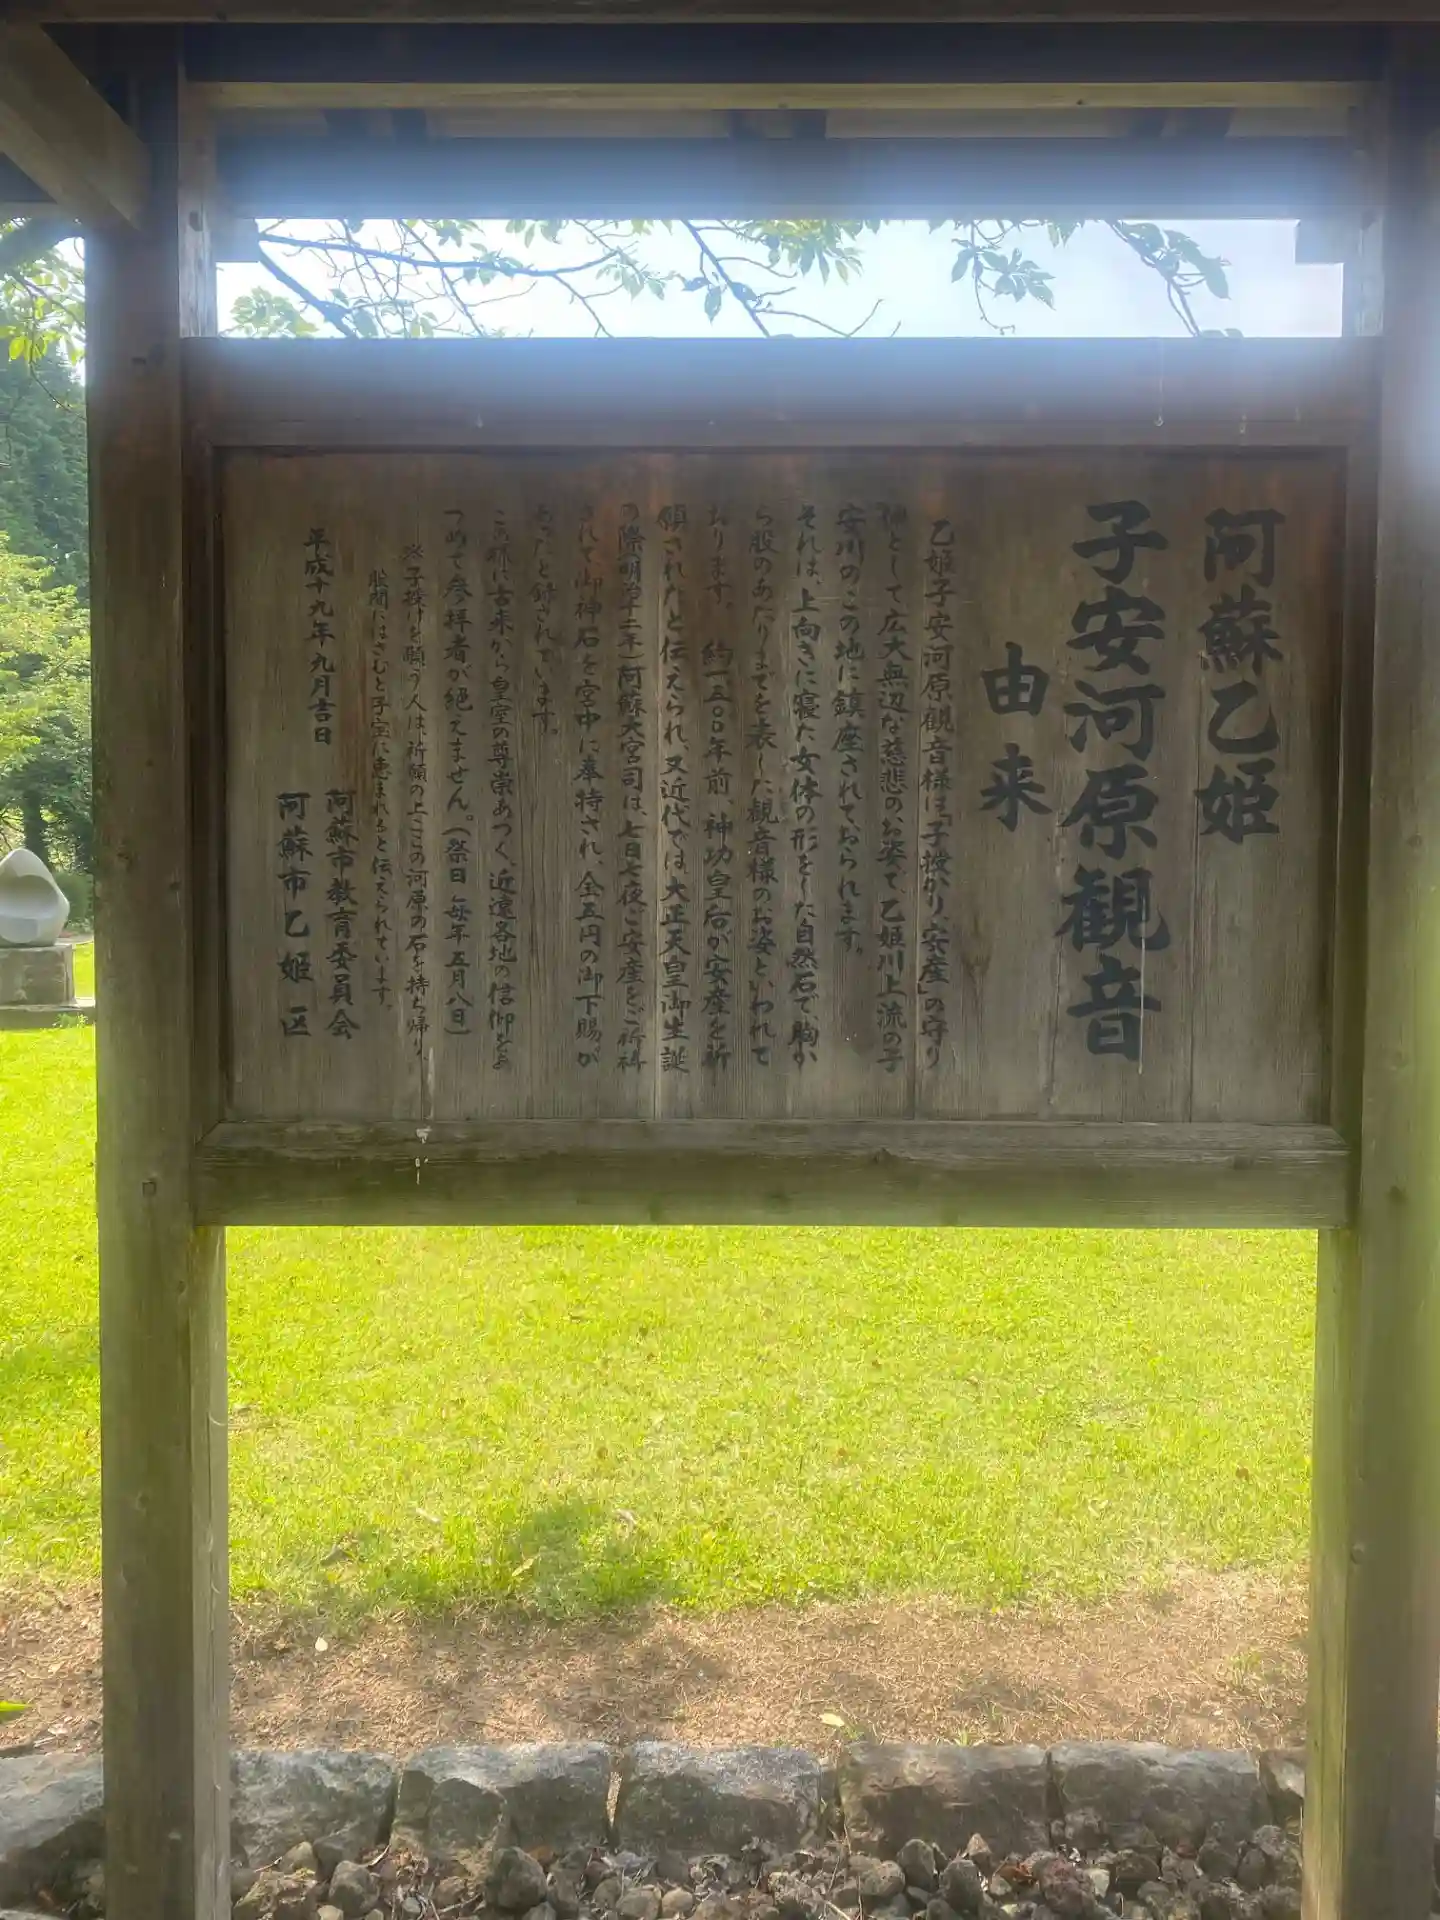 阿蘇乙姫
子安河原観音
由来
乙姫子安河原観音様は「子授かり、安産」の守り
佛として広大無辺な慈悲のお姿で、乙姫川上流の子
安川のこの地に鎮座されておられます。
それは、上向きに寝た女体の形をした自然石で、胸か
ら股のあたりまでを表した観音様のお姿といわれて
おります。 約一五〇〇年前、神功皇后が安産を祈
願されたと伝えられ、又近代では、大正天皇御生誕
の際、明治十二年、阿蘇大宮司は、七日七夜ご安産をご祈祷
されて御神石を宮中に奉持され、金五円の御下賜が
あったと録されています。
この様に古来から皇室の尊崇あつく、近遠各地の信仰をあ
つめて参拝者が絶えません。(祭日 毎年五月八日)
※子授けを願う人は、祈願の上ここの河原の石を持ち帰り、
股間にはさむと子宝に恵まれると伝えられています。
平成十九年九月吉日
阿蘇市教育委員会
阿蘇市乙姫区